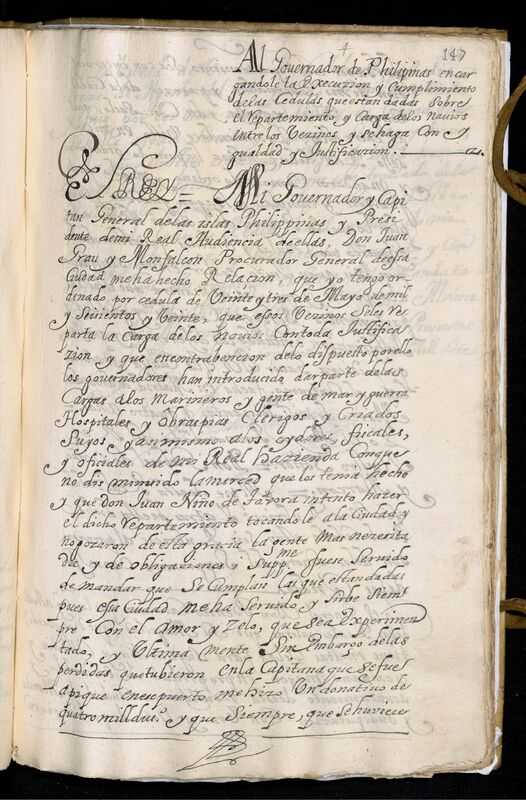 4
147
Al Governador de Philipinas encar
gandole la execuzion y Cumplimiento
de las Cedulas que estan dadas sobre
el repartimiento, y Carga de los navios
entre los Vezinos y se haga Con y
gualdad y Justificazion.
El Rey = Mi Governador y Capi
tan General de las islas Philippinas y Presi
dente de mi Real Audiencia de ellas, Don Juan
Grau y Monfalcon Procurador General de esa
Ciudad me ha hecho Relacion, que yo tengo or
denado por cedula de Veinte y tres de Mayo de mil
y Seiscientos y Veinte, que esos Vezinos se les re
parta la Carga de los navios Con toda Justifica
zion, y que en contrabencion de lo dispuesto por ello
los governadores han introducido dar parte de las
Cargas a los Marineros y gente de mar y guerra
Hospitales y Obras pias Clerigos y Criados
Suyos, y asi mismo a los oydores, fiscales,
y oficiales de mi Real Hazienda Con que
no dis minuido la merced que los tenia hecho
y que don Juan Niño de Tavora intento hacer
el dicho repartimiento tocandole a la Ciudad y
no gozaron de esta gracia la gente mas necesita
da y de obligaciones; Supp.me fuese servido
de mandar que se Cumplan las que estan dadas
pues esa Ciudad me ha Servido, y Sirbe Siem
pre Con el Amor y Zelo, que sea experimen
tado, y Ultima mente Sin embargo de las
perdidas que tubieron en la Capitana que se fue
a pique en ese puerto me hizo Un donativo de
quatro mill duc.s y que Siempre, que se huviere